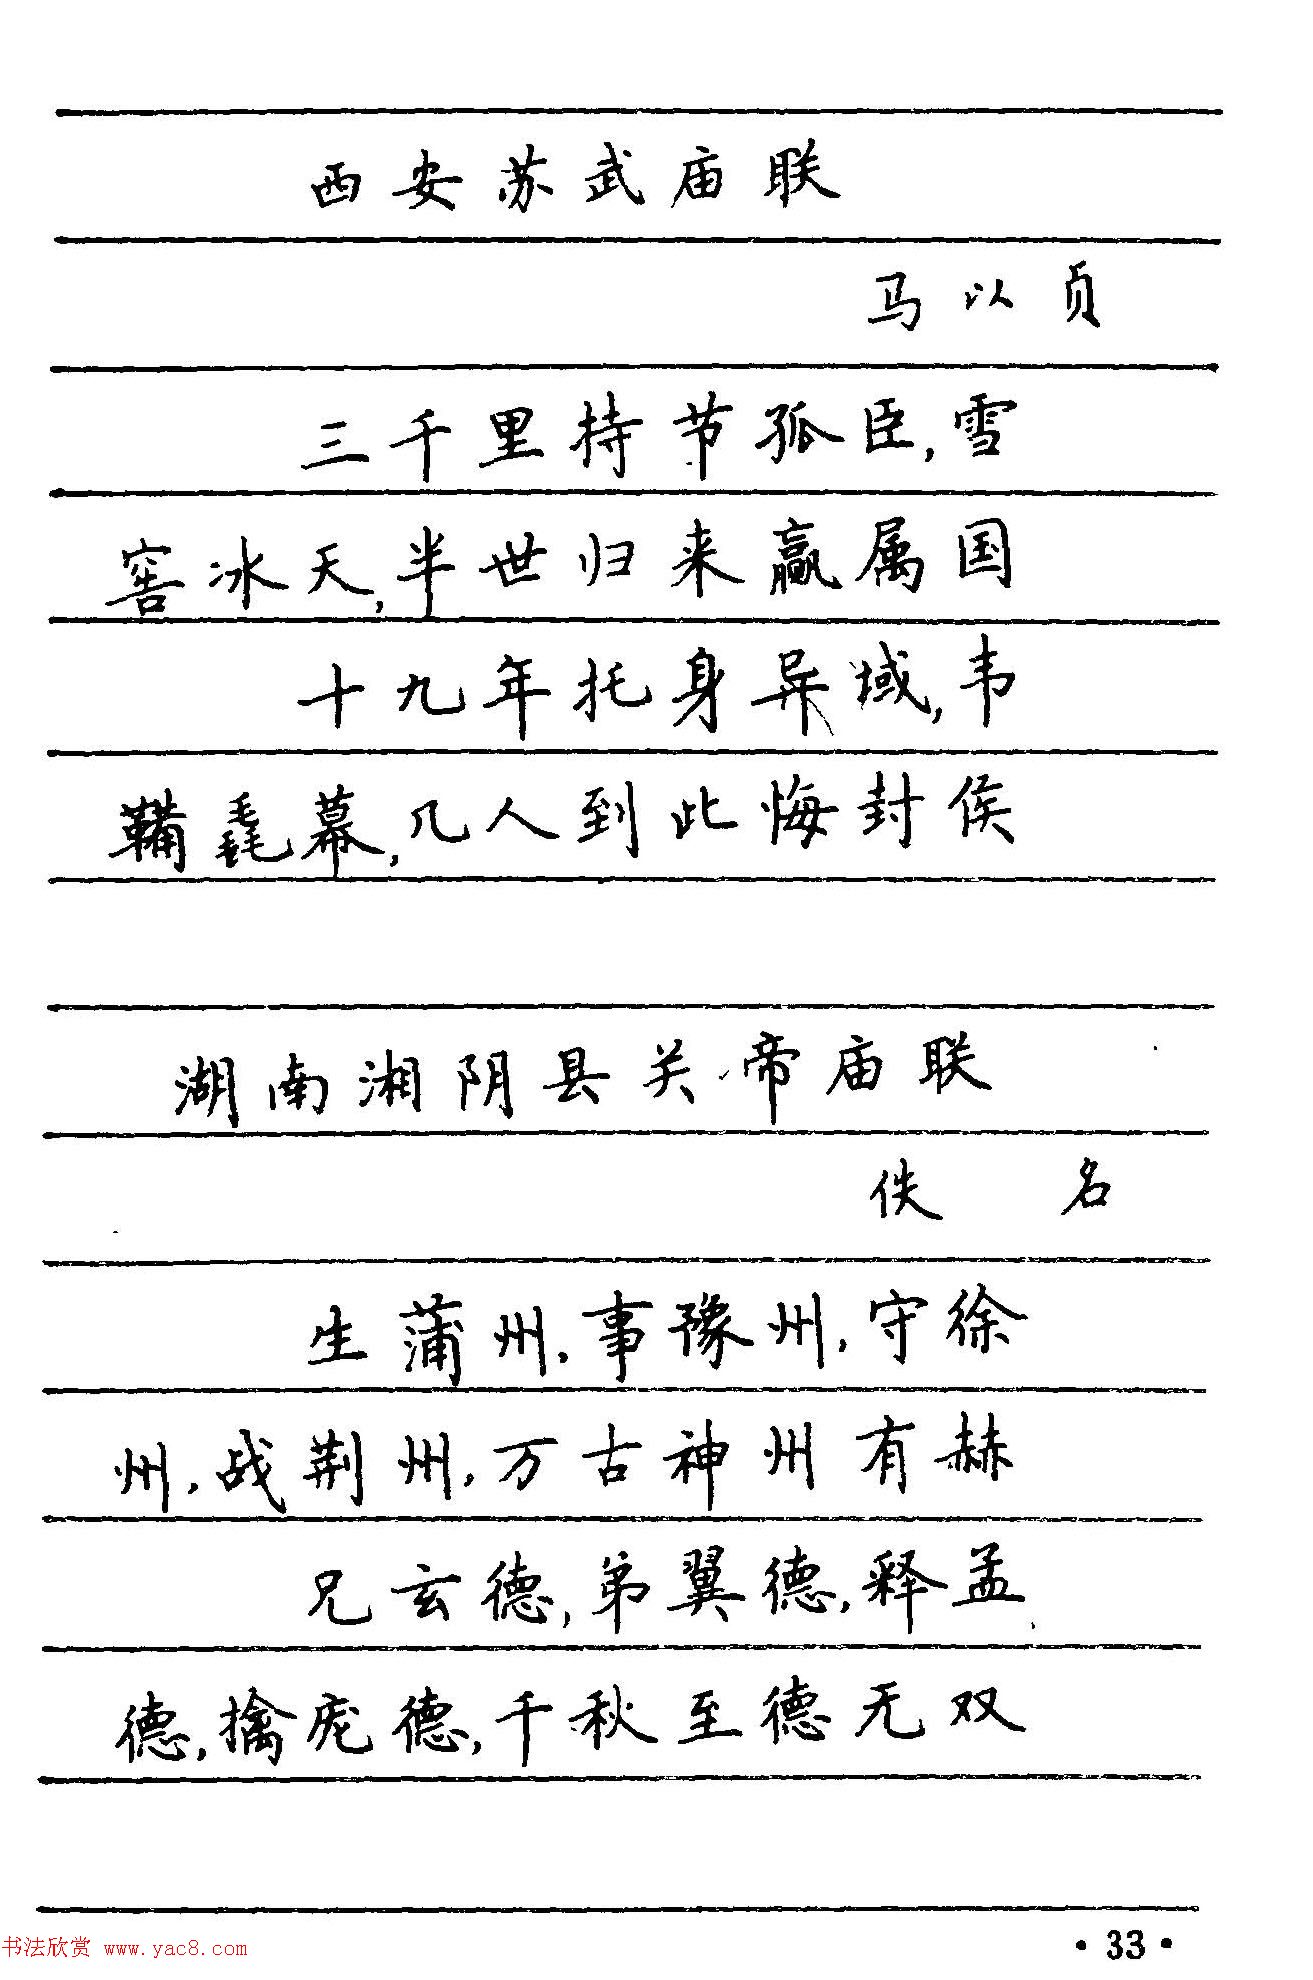 西安苏武庙联
马以贞
三千里持节孤臣,雪
窖冰天,半世归来赢属国
十九年托身异域,韦
鞲毳幕,几人到此悔封侯
湖南湘阴县关帝庙联
佚名
生蒲州,事豫州,守徐
州,战荆州,万古神州有赫
兄玄德,弟翼德,释孟
德,擒庞德,千秋至德无双
书法欣赏 www.yac8.com
·33·